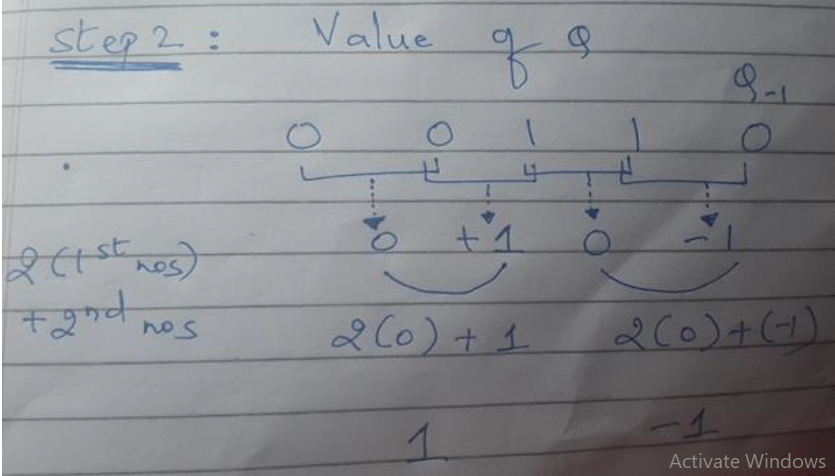 Step 2 : Value of Q
Q-1
0 0 1 1 0
0 +1 0 -1
2(1st nos)
+ 2nd nos
2(0) + 1 2(0) + (-1)
1 -1
Activate Windows